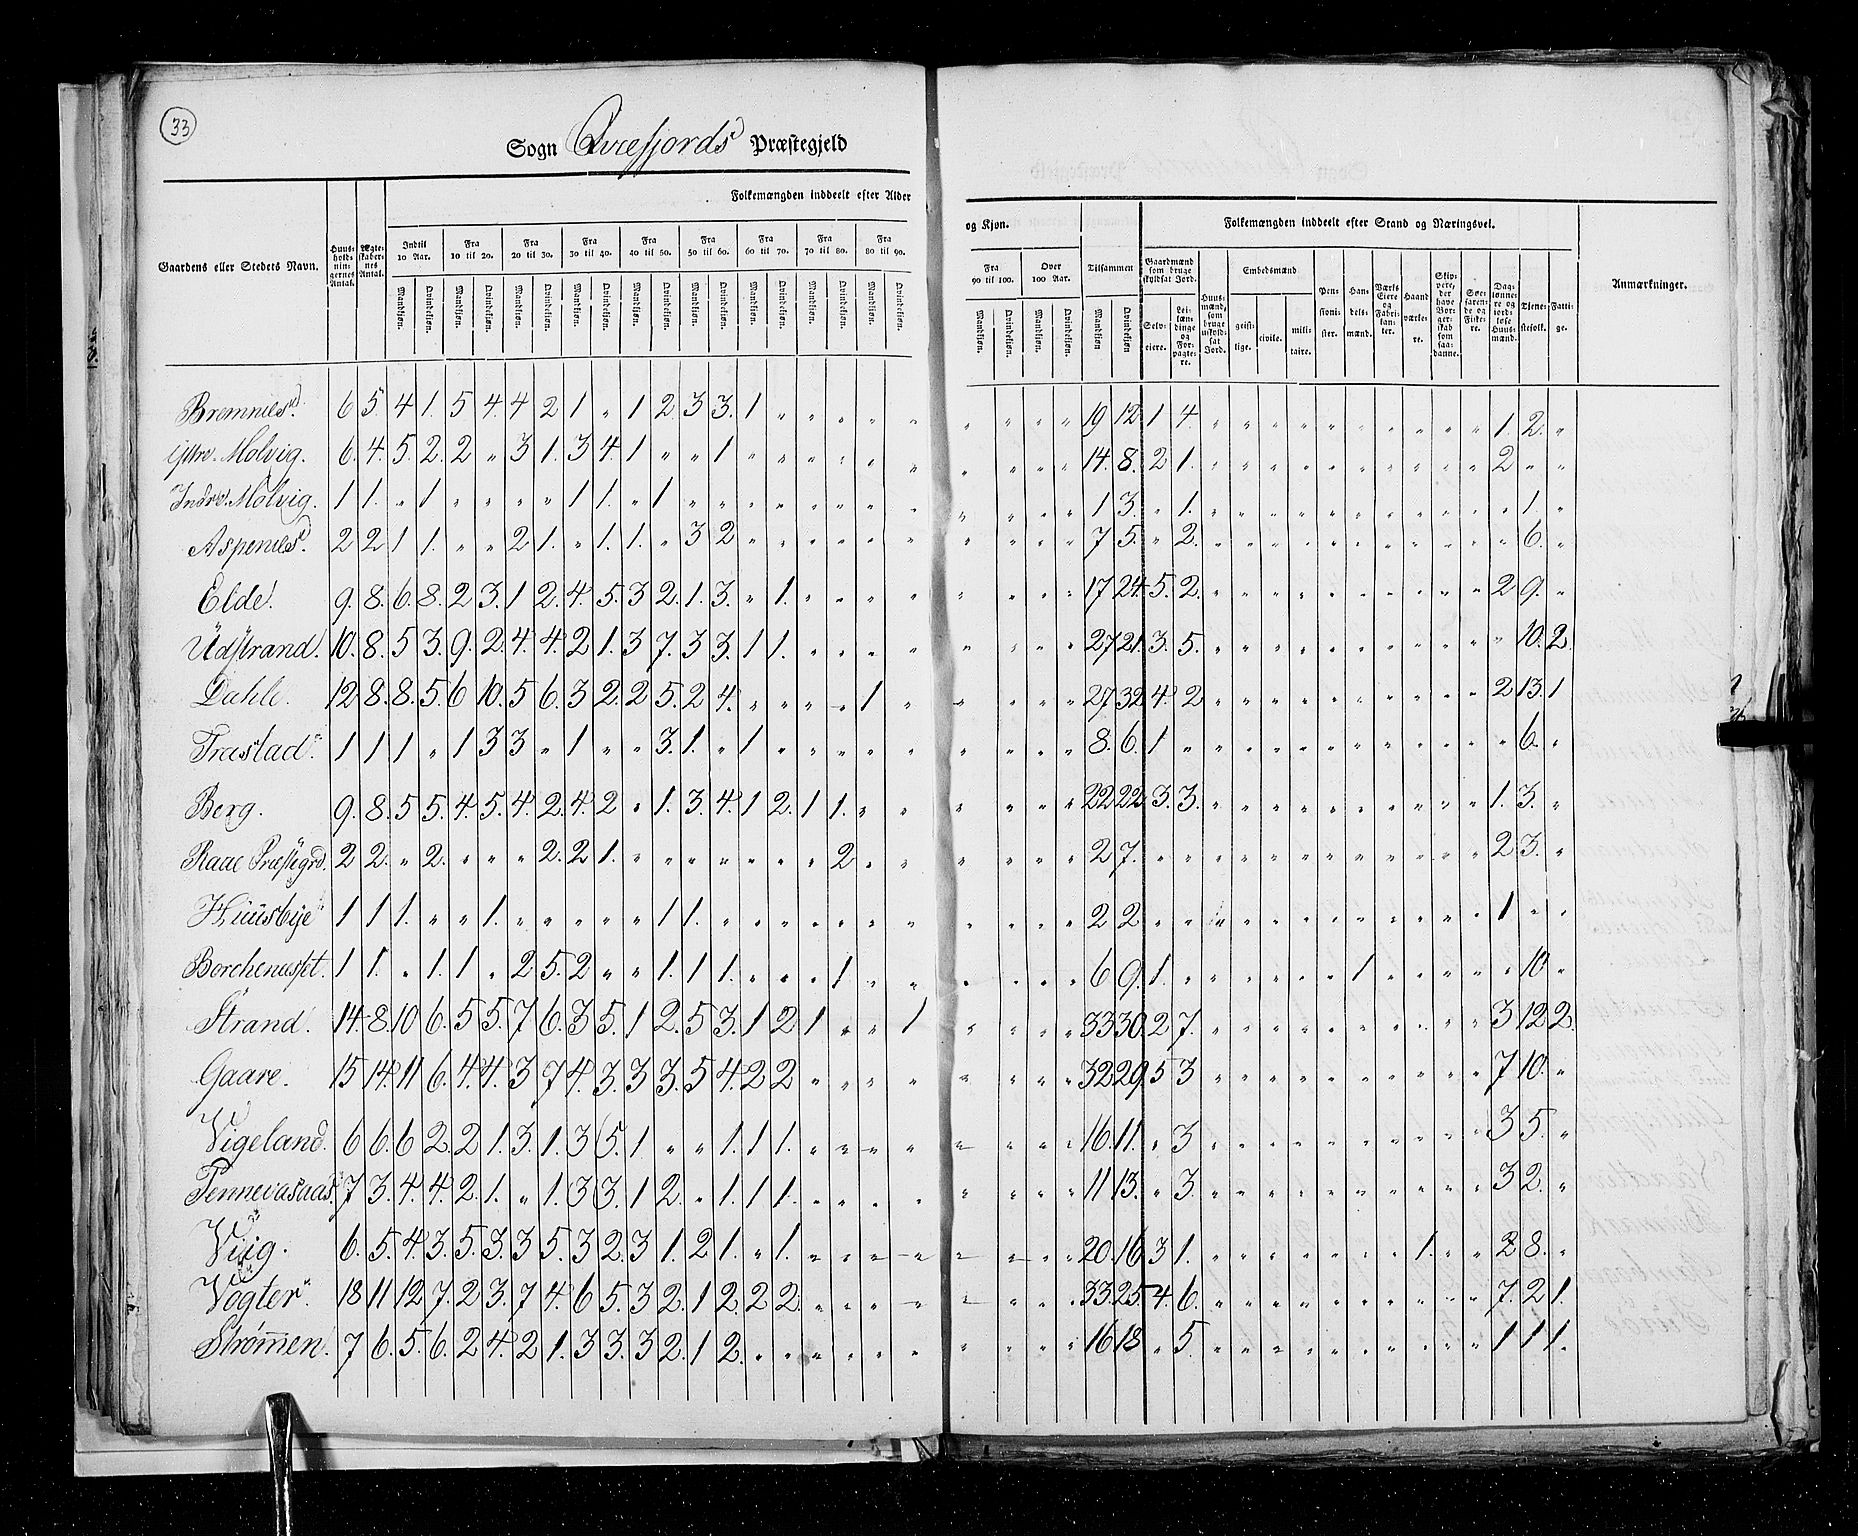 33
Sogn Qvæfjords Præstegjeld
Folkemængden inddeelt efter Alder
og Kjøn.
Tilsammen
Folkemængden inddeelt efter Stand og Næringsvei.
Gaardens eller Stedets Navn.
Huusholdningernes Antal.
Ægteskabernes Antal.
Indtil 10 Aar.
Fra 10 til 20.
Fra 20 til 30.
Fra 30 til 40.
Fra 40 til 50.
Fra 50 til 60.
Fra 60 til 70.
Fra 70 til 80.
Fra 80 til 90.
Fra 90 til 100.
Over 100 Aar.
Mandkjøn. Qvindekjøn.
Gaardmænd som bruge skyldsat Jord.
Selveiere.
Leilændinge og Forpagtere.
Huusmænd, som bruge uskyldsat Jord.
Embedsmænd
geistlige.
civile.
militaire.
Pensionister.
Handelsmænd.
Værkseiere og Fabrikanter.
Haandværkere.
Skippere, der have Borgerskab som saadanne.
Søefarende og Fiskere.
Daglønnere og jordløse Huusmænd.
Tjenestefolk.
Fattige.
Anmærkninger.
Bremnes. 6 5. 4 1. 5 4. 4 2 1 " 1 2. 3 3. 1 " " " " " " " " " 19 12 1 4. " " " " " " " " " " 1. 2. "
Ystre Molvig. 6. 4. 5. 2. 2 " 3 1. 3 4. 1 " " 1 " " " " " " " " " " 14. 8. 2 1. " " " " " " " " " " 2 " "
Indre Molvig. 1 1. " 1 " " " " 1 1. " 1 " " " " " " " " " " " " 1 3. " 1. " " " " " " " " " " " 1. "
Aspenes. 2 2 1 1. " " 2 1. " 1. 1. " 3 2 " " " " " " " " " " 7 5. " 2. " " " " " " " " " " " 6. "
Elde. 9. 8. 6. 8. 2 3. 1 2. 4. 5. 3 2. 1. 3. " 1. " " " " " " " " 17 24. 5. 2. " " " " " " " " " " 2 9. "
Udstrand. 10. 8. 5 3. 9. 2. 4. 4. 2 1. 3 7. 3 3. 1 1. " " " " " " " " 27 21. 3. 5. " " " " " " " " " " " 10. 2.
Dahle. 12 8. 8. 5. 6 10. 5 6. 3 2. 2 5. 2 4. " " " " 1 " " " " " 27 32 4. 2 " " " " " " " " " " 2 13. 1
Træstad. 1 1 1 " 1 3 3 " 1 " " 3. 1. " 1 " " " " " " " " " 8. 6. 1 " " " " " " " " " " " " 6. "
Berg. 9. 8. 5 5. 4. 5. 4. 2. 4. 2 " 1. 3. 4. 1 2. 1 1. " " " " " " 22 22. 3. 3. " " " " " " " " " " 1. 3. "
Raae Præstegrd. 2 2. " 2. " " " 2. 2 1. " " " " " " " 2. " " " " " " 2 7. " " " " " " " " " " " " 2 3. "
Huusbye 1 1 1. " " 1. " " " " " 1 1. " " " " " " " " " " " 2 2 " " " " " " " " " " " " 1 " "
Borchenesset. 1 1. " 1. 1 " 2 5. 2 " " 1. 1 1 " " " 1 " " " " " " 6 9. 1 " " " " " " 1 " " " " " 10 "
Strand. 14. 8. 10 6. 5 5. 7 6. 3 5. 1 2. 5 3. 1 2 1 " " 1 " " " " 33 30. 2 7. " " " " " " " " " " 3 12 2
Gaare. 15 14. 11 6. 4. 4. 3 7 4. 3. 3 3. 5 4. 2 2 " " " " " " " " 32 29. 5 3 " " " " " " " " " " 7 10. "
Vigeland. 6 6. 6 2. 2 1. 3. 1. 3 5. 1 " " 1. 1 1. " " " " " " " " 16. 11. " 3 " " " " " " " " " " 3 5. "
Tennevasaas. 7 3. 4. 4. 2 1. " 1. 3 3. 1 2. " 1. 1 1. " " " " " " " " 11 13. " 3. " " " " " " " " " " 3 2. "
Viig. 6. 5. 4. 3. 5. 3. 3 5. 3 2. 3 1. 2 1. " 1. " " " " " " " " 20. 16 3 1. " " " " " " " 1. " " 2 8. "
Vøgter. 18 11 12 7. 2 3. 7 4. 6 5. 3 2. 1 2. 2 2. " " " " " " " " 33. 25. 4. 6. " " " " " " " " " " 7. 2 1.
Strømmen. 7 6. 5. 6. 2 4. 2 1. 3 3. 3 2. 1 2. " " " " " " " " " " 16 18 " 5. " " " " " " " " " " 1 1 1.